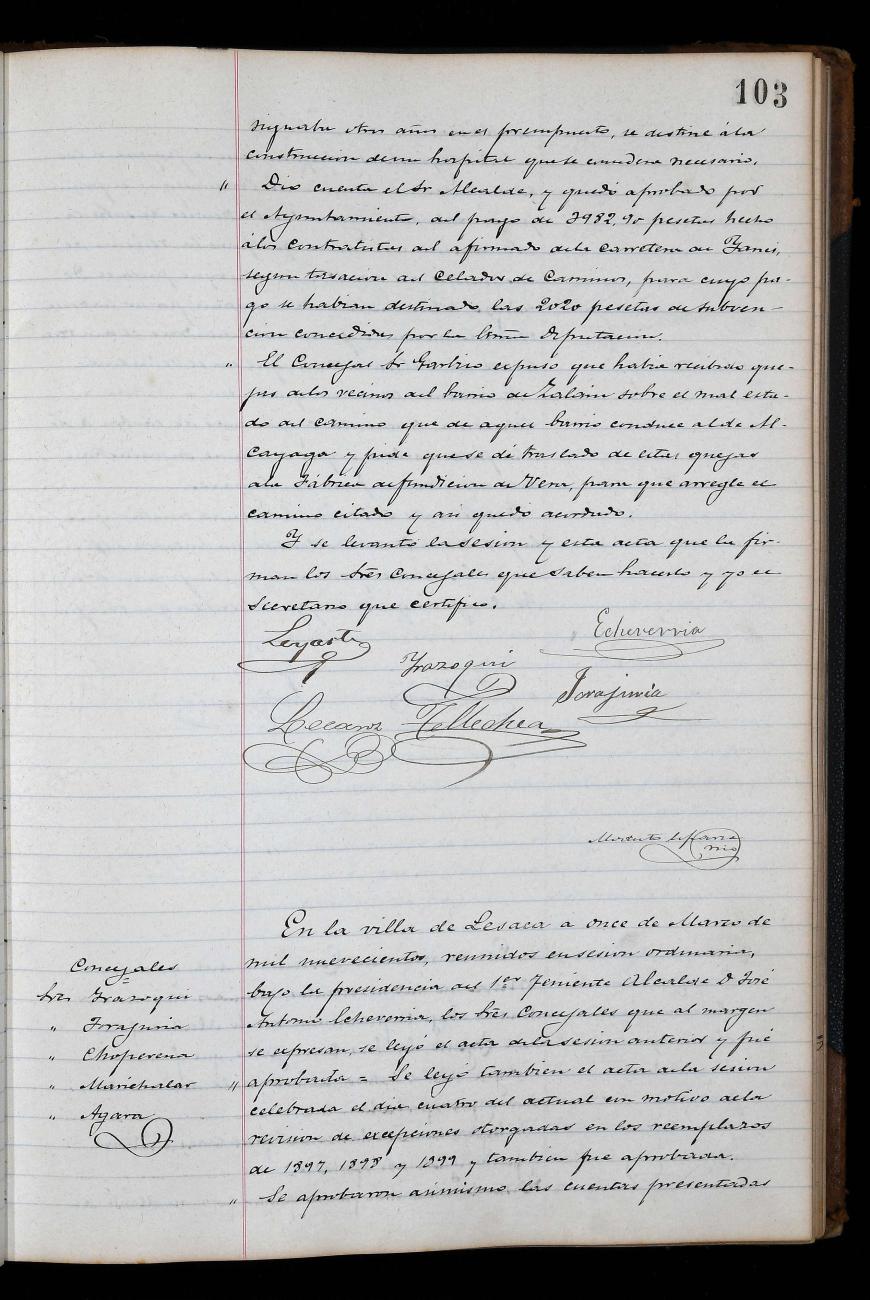 103
signaba otros años en el presupuesto, se destine á la
construccion de un hospital que se considera necesario.
" Dio cuenta el Sr Alcalde, y quedó aprobado por
el Ayuntamiento, del pago de 3982,90 pesetas hecho
á los contratistas del afirmado de la carretera de Yanci,
segun tasacion del Celador de Caminos, para cuyo pa-
go se habian destinado las 2020 pesetas de subven-
cion concedidas por la Diputacion.
" El Concejal Sr expuso que habia recibido que-
jas de los vecinos del barrio de Zalain sobre el mal esta-
do del camino que de aquel barrio conduce al de Al-
cayaga y pide que se dé traslado de estas quejas
a la Fábrica de fundicion de Vera, para que arregle el
camino citado y asi quedo acordado.
Y se levantó la sesion y esta acta que la fir-
man los Sres Concejales que saben hacerlo y yo el
Secretario que certifico.
Echeverria
Yrazoqui
Jorajuria
Tellechea
En la villa de Lesaca a once de Marzo de
mil nuevecientos, reunidos en sesion ordinaria,
bajo la presidencia del 1er Teniente Alcalde D José
Antonio Echeverria, los Sres Concejales que al margen
se expresan, se leyó el acta de la sesion anterior y fué
aprobada = Se leyó tambien el acta de la sesion
celebrada el dia cuatro del actual con motivo de la
revision de excepciones otorgadas en los reemplazos
de 1897, 1898 y 1899 y tambien fue aprobada.
" Se aprobaron asimismo las cuentas presentadas
Concejales
Sres Yrazoqui
" Jorajuria
" Choperena
" Marichalar
" Agara